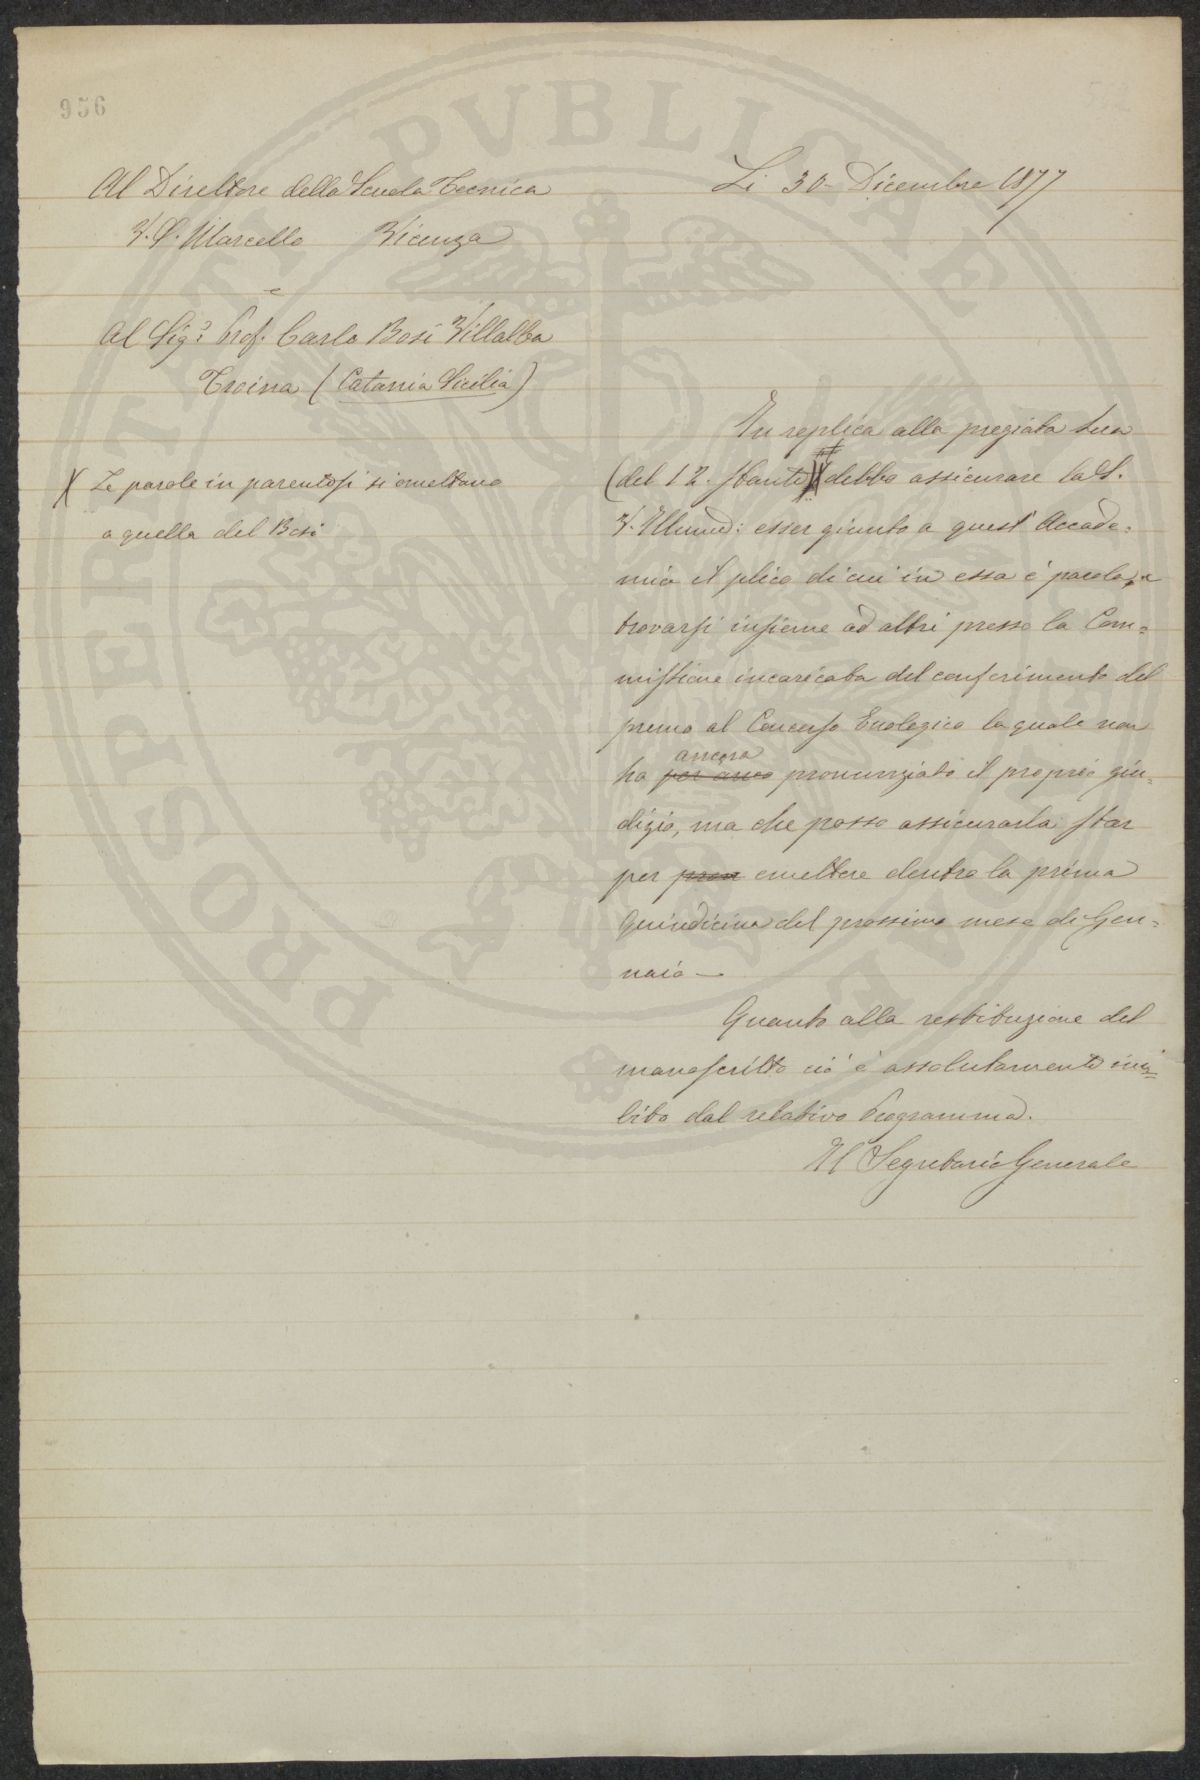 956
502
Al Direttore della Scuola Tecnica
V. S. Marcello Vicenza
e
Al Sig.r Prof. Carlo Bosi Villalba
Troina (Catania Sicilia)
X Le parole in parentosi si omettano
a quella del Bosi
Li 30 Dicembre 1877
In replica alla pregiata Sua
(del 12. stante) debbo assicurare la S.
V. Illumd: esser giunto a quest' Accade=
mia il plico di cui in essa è parola, e
trovarsi insieme ad altri presso la Com=
missione incaricata del conferimento del
premio al Concorso Enologico la quale non
ancora
ha per anco pronunziato il proprio giu=
dizio, ma che posso assicurarla star
per pron emettere dentro la prima
quindicina del prossimo mese di Gen=
naio —
Quanto alla restituzione del
manoscritto ciò è assolutamente ini=
bito dal relativo Programma.
Il Segretario Generale
PROSPERITATI PVBLICAE